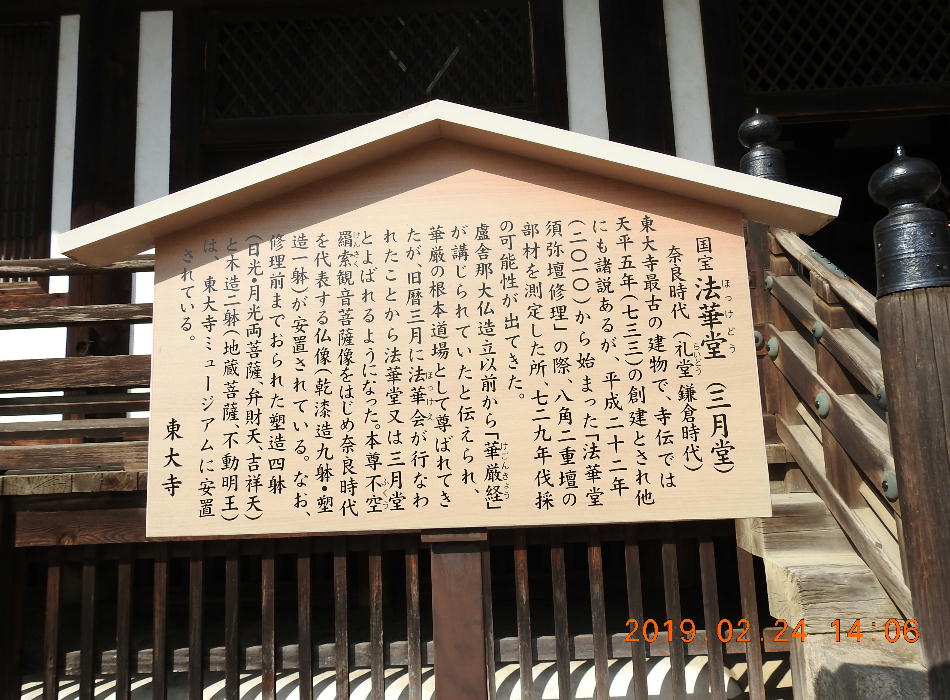 国宝 法華堂(三月堂)
ほっけどう
奈良時代(礼堂 鎌倉時代)
らいどう
東大寺最古の建物で、寺伝では
天平五年(七三三)の創建とされ他
にも諸説あるが、平成二十二年
(二〇一〇)から始まった「法華堂
須弥壇修理」の際、八角二重壇の
部材を測定した所、七二九年伐採
の可能性が出てきた。
盧舎那大仏造立以前から「華厳経」
けごんきょう
が講じられていたと伝えられ、
華厳の根本道場として尊ばれてき
たが、旧暦三月に法華会が行なわ
ほっけえ
れたことから法華堂又は三月堂
とよばれるようになった。本尊不空
ふくう
羂索観音菩薩像をはじめ奈良時代
けんさく
を代表する仏像(乾漆造九躰・塑
造一躰)が安置されている。なお、
修理前までおられた塑造四躰
(日光・月光両菩薩、弁財天、吉祥天)
と木造二躰(地蔵菩薩、不動明王)
は、東大寺ミュージアムに安置
されている。
東大寺
2019 02 24 14:06